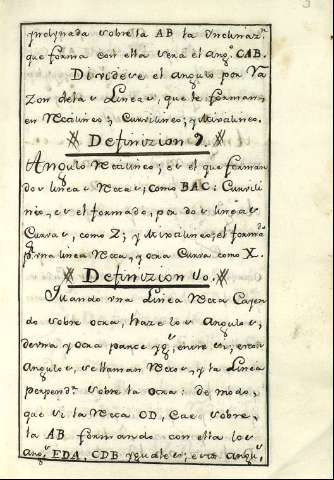 inclynada sobre la AB la Ynclinaz.ⁿ
que forma con ella sera el ang.º CAB.
Dividese el angulo por rà
zon delas Lineas, que le forman
en Rectilineo; Curvilineo; y Mixtilineo.
Definizion 9.
Angulo Rectilineo; es el que forman
dos lineas Rectas; como BAC: Curvili
nio, es el formado, por dos lineas
Curvas, como Z; y Mixtilineo; el formdº
pr vna linea Recta, y otra Curva como X.
Definizion 10.
Quando vna Linea Recta Cayen
do sobre otra, haze los Angulos,
de vna y otra parte yg.s entre si; estos
Angulos, se llaman Rectos, y la Linea
perpend.r sobre la otra: de modo,
que si la Recta CD, Cae sobre,
la AB formando con ella los
Ang.s EDA, CDB yguales; estos Angu.s